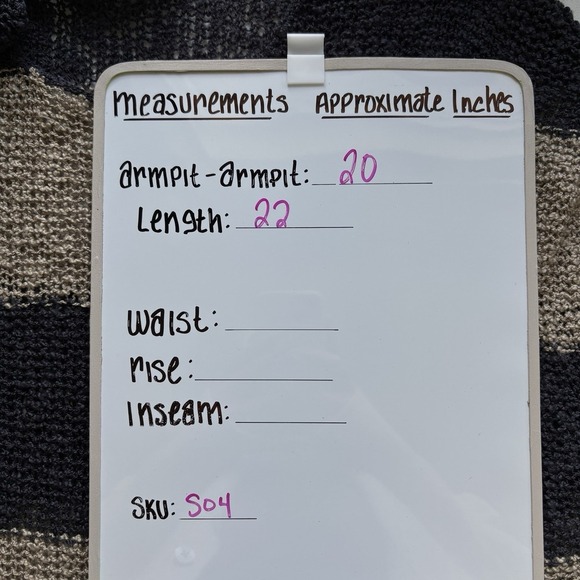 measurements Approximate Inches
armpit-armpit: 20
Length: 22
waist:
rise:
Inseam:
SKU: S04